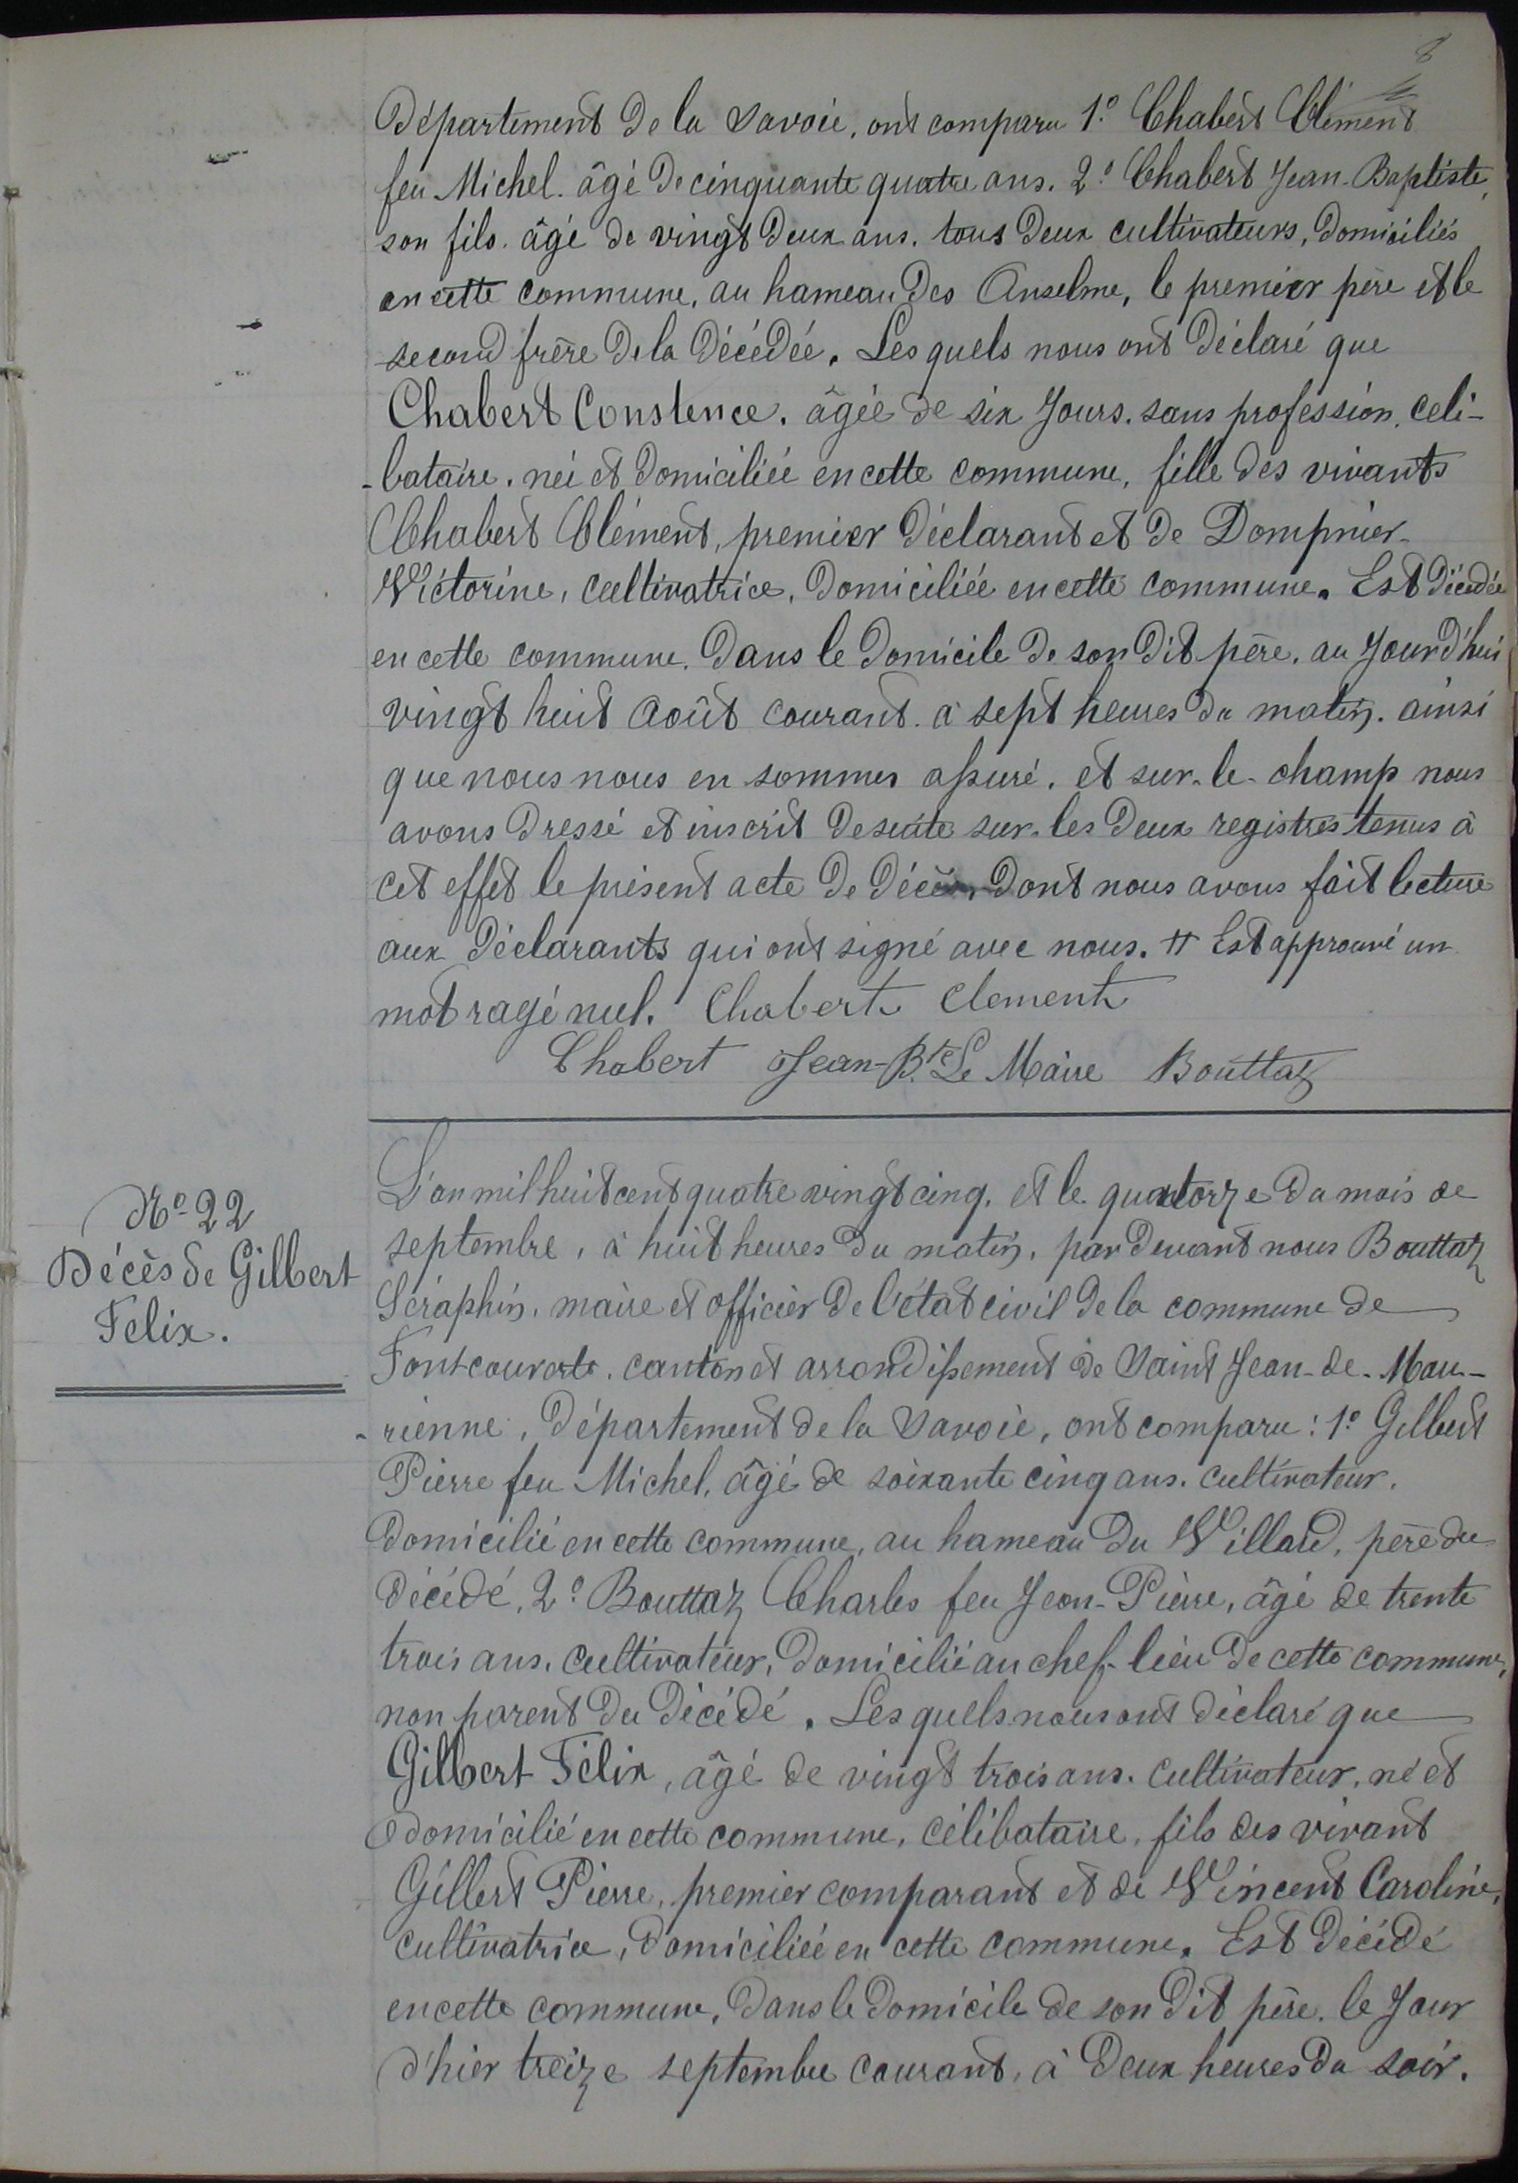 8
Département de la Savoie, ont comparu 1.° Chabert Clément
feu Michel. âgé de cinquante quatre ans. 2.° Chabert Jean-Baptiste,
son fils. âgé de vingt deux ans. tous deux cultivateurs, domiciliés
en cette commune, au hameau des Anselme, le premier père et le
second frère de la décédée. Les quels nous ont déclaré que
Chabert Constence. âgée de six Jours. sans profession, celi-
-bataire. née et domiciliée en cette commune, fille des vivants
Chabert Clément, premier déclarant et de Dompnier-
Victorine, cultivatrice, domiciliée en cette commune. Est décédée
en cette commune. dans le domicile de son dit père. au Jourd'hui
vingt huit Août courant. à sept heures du matin. ainsi
que nous nous en sommes assuré. et sur-le-champ nous
avons dressé et inscrit de suite sur-les deux registres tenus à
cet effet le présent acte de décès, dont nous avons fait lecture
aux déclarants qui ont signé avec nous. # Est approuvé un
mot ragé nul. Chabert Clement
Chabert Jean-Bte Le Maire Bouttaz
N° 22
Décès de Gilbert
Felix.
L'an mil huit cent quatre vingt cinq. et le quatorze du mois de
septembre, à huit heures du matin, par devant nous Bouttaz
Séraphin, maire et officier de l'état civil de la commune de
Fontcouverte. canton et arrondissement de Saint Jean-de-Mau-
-rienne, Département de la Savoie, ont comparu : 1.° Gilbert
Pierre feu Michel, âgé de soixante cinq ans. cultivateur.
domicilié en cette commune, au hameau du Villard, père du
décédé, 2.° Bouttaz Charles feu Jean-Pierre, âgé de trente
trois ans. cultivateur, domicilié au chef-lieu de cette commune,
non parent du décédé. Les quels nous ont déclaré que
Gilbert Félix, âgé de vingt trois ans. cultivateur, né et
domicilié en cette commune, célibataire, fils des vivant
Gilbert Pierre, premier comparant et de Vincent Caroline,
cultivatrice, domiciliée en cette commune. Est décédé
en cette commune, dans le domicile de son dit père. le Jour
d'hier treize septembre courant, à deux heures du soir.